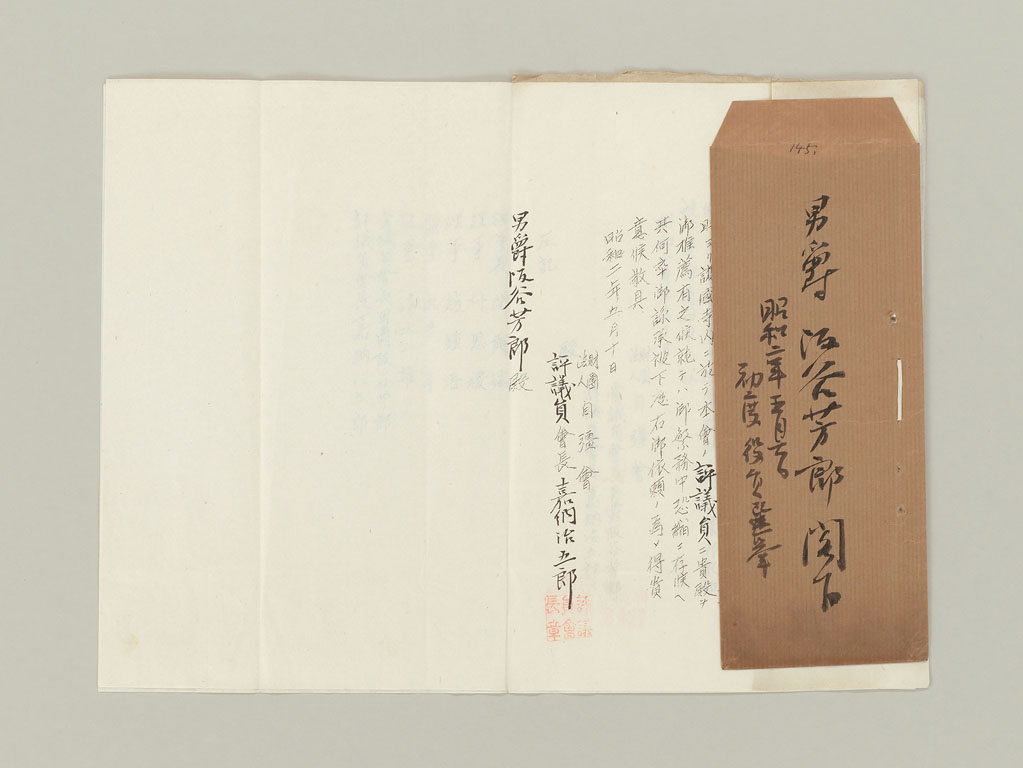 145.
男爵 阪谷芳郎 閣下
昭和二年五月
初度役員選挙
評議員ニ貴殿ヲ
御推薦有之候就テハ御繁務中恐縮ニ存候ヘ
共何卒御諒承被下度右御依頼ノ為メ得貴
意候敬具
昭和二年五月十日
財團法人 自彊會
評議員會長 嘉納治五郎
評議員會長章
男爵阪谷芳郎殿